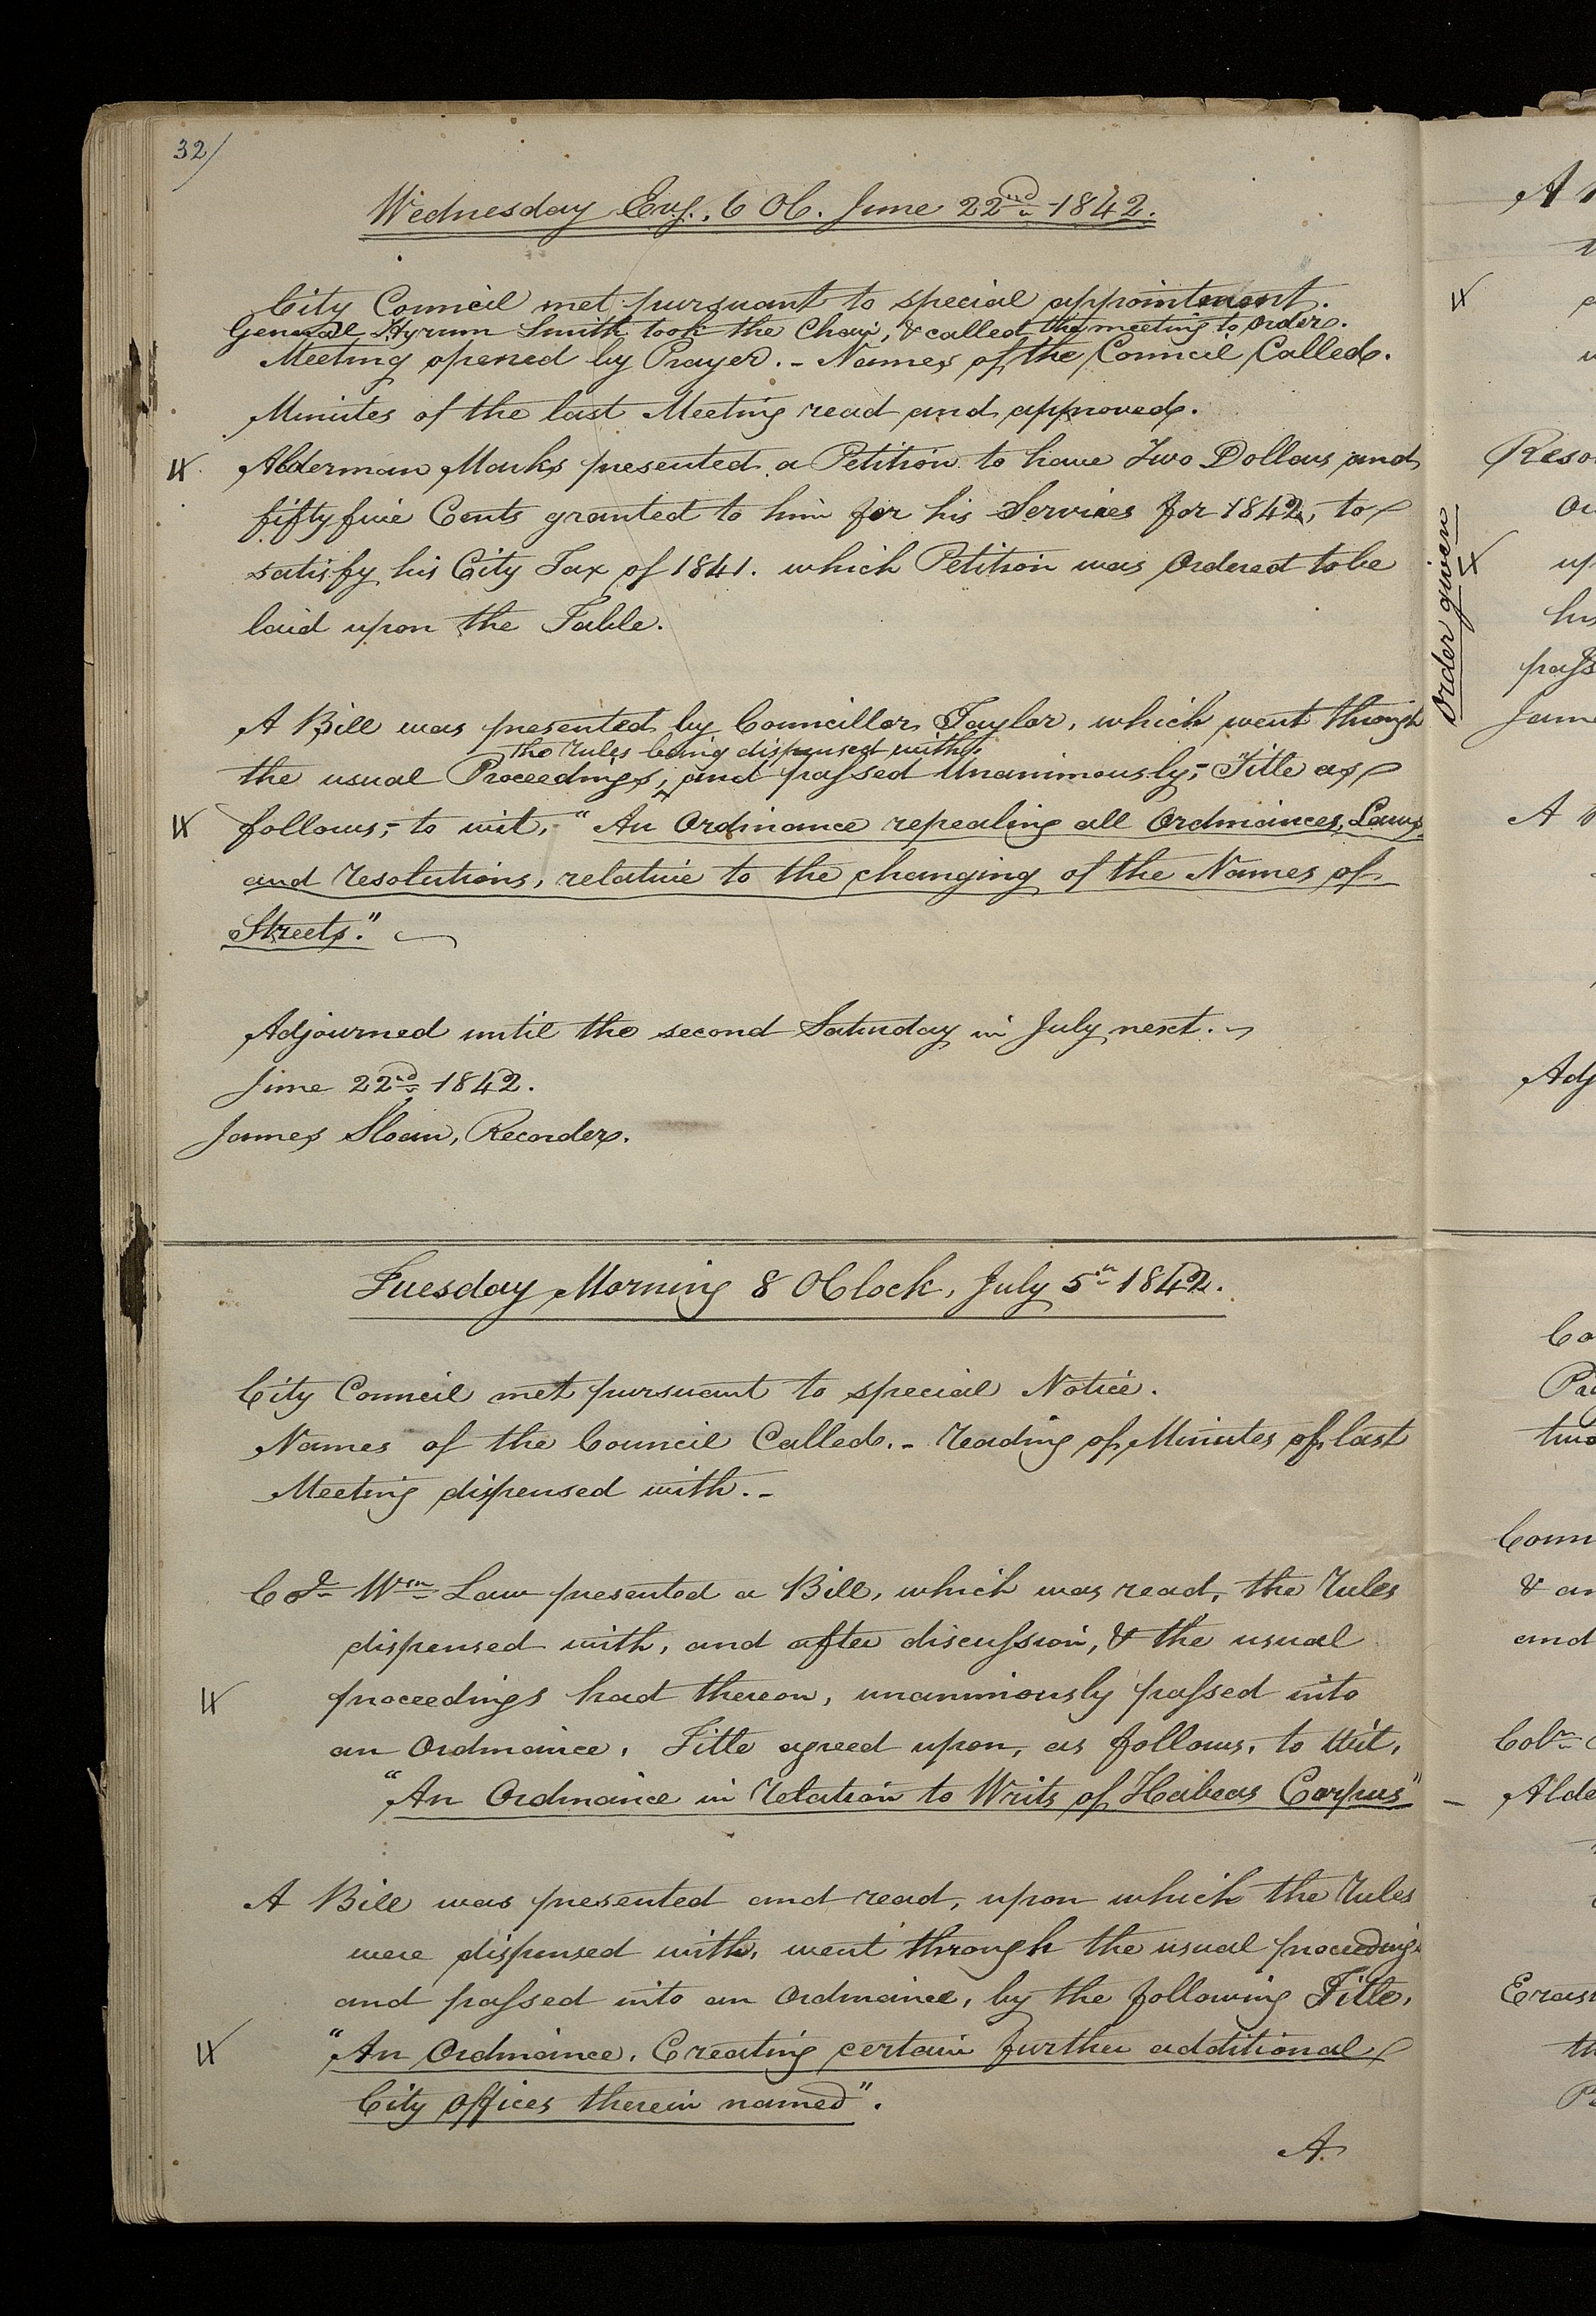 32/
Wednesday Evg., 6 OC. June 22nd 1842.
City Council met pursuant to special appointment.
General Hyrum Smith took the Chair, & called the meeting to order.
Meeting opened by Prayer. - Names of the Council Called.
Minutes of the last Meeting read and approved.
Alderman Marks presented a Petition to have Two Dollars and
fifty five Cents granted to him for his Services for 1842, to
satisfy his City Tax of 1841. which Petition was Ordered to be
laid upon the Table.
A Bill was presented by Councillor Taylor, which went through
the rules being dispensed with,
the usual Proceedings, and passed Unanimously;- Title as
follows;- to wit, "An Ordinance repealing all Ordinances, Laws,
and resolutions, relative to the changing of the Names of
Streets."
Adjourned until the second Saturday in July next.
June 22nd 1842.
James Sloan, Recorder.
Tuesday Morning 8 OClock, July 5th 1842.
City Council met pursuant to special Notice.
Names of the Council Called. - reading of Minutes of last
Meeting dispensed with. -
Col. Wm Law presented a Bill, which was read, the rules
dispensed with, and after discussion, & the usual
proceedings had thereon, unanimously passed into
an Ordinance, Title agreed upon, as follows, to Wit,
"An Ordinance in relation to Writs of Habeas Corpus"
A Bill was presented and read, upon which the rules
were dispensed with, went through the usual proceedings
and passed into an Ordinance, by the following Title,
"An Ordinance, Creating certain further additional
City offices therein named".
A
Order given